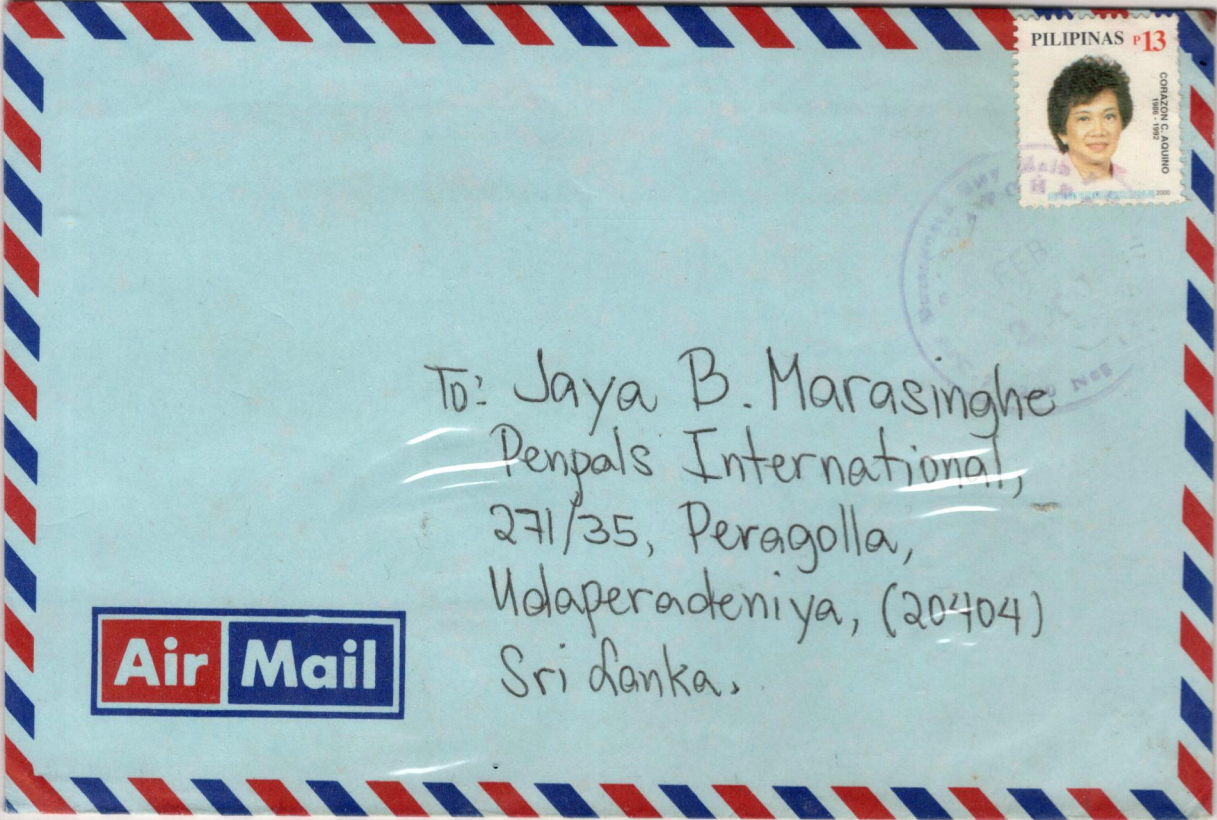 PILIPINAS P13
CORAZON C. AQUINO
1986 - 1992
2000
FEB
To: Jaya B. Marasinghe
Penpals International,
271/35, Peragolla,
Udaperadeniya, (20404)
Sri Lanka.
Air Mail